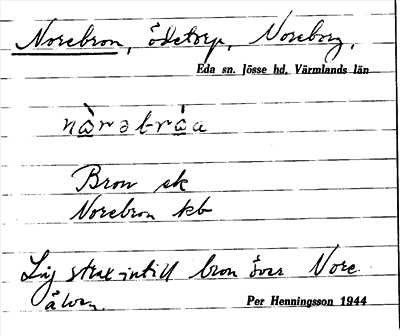 Norebron, ödetorp, Noreborg,
Eda sn. Jösse hd, Värmlands län
nὰrəbráa
Bron sk
Norebron kb
Låg strax intill bron över Nore
älven.
Per Henningsson 1944